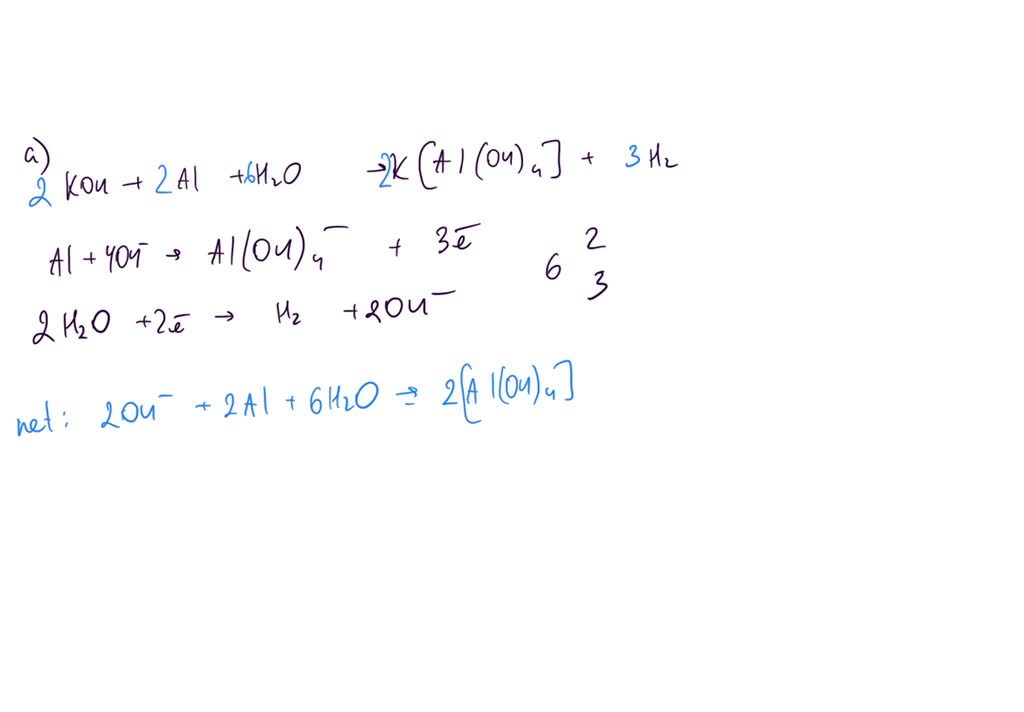 a)
2 KOH + 2 Al + 6 H₂O → 2K[Al(OH)₄] + 3 H₂
Al + 4OH⁻ → Al(OH)₄⁻ + 3e⁻ 2
6
2H₂O + 2e⁻ → H₂ + 2OH⁻ 3
net: 2OH⁻ + 2Al + 6H₂O → 2[Al(OH)₄]